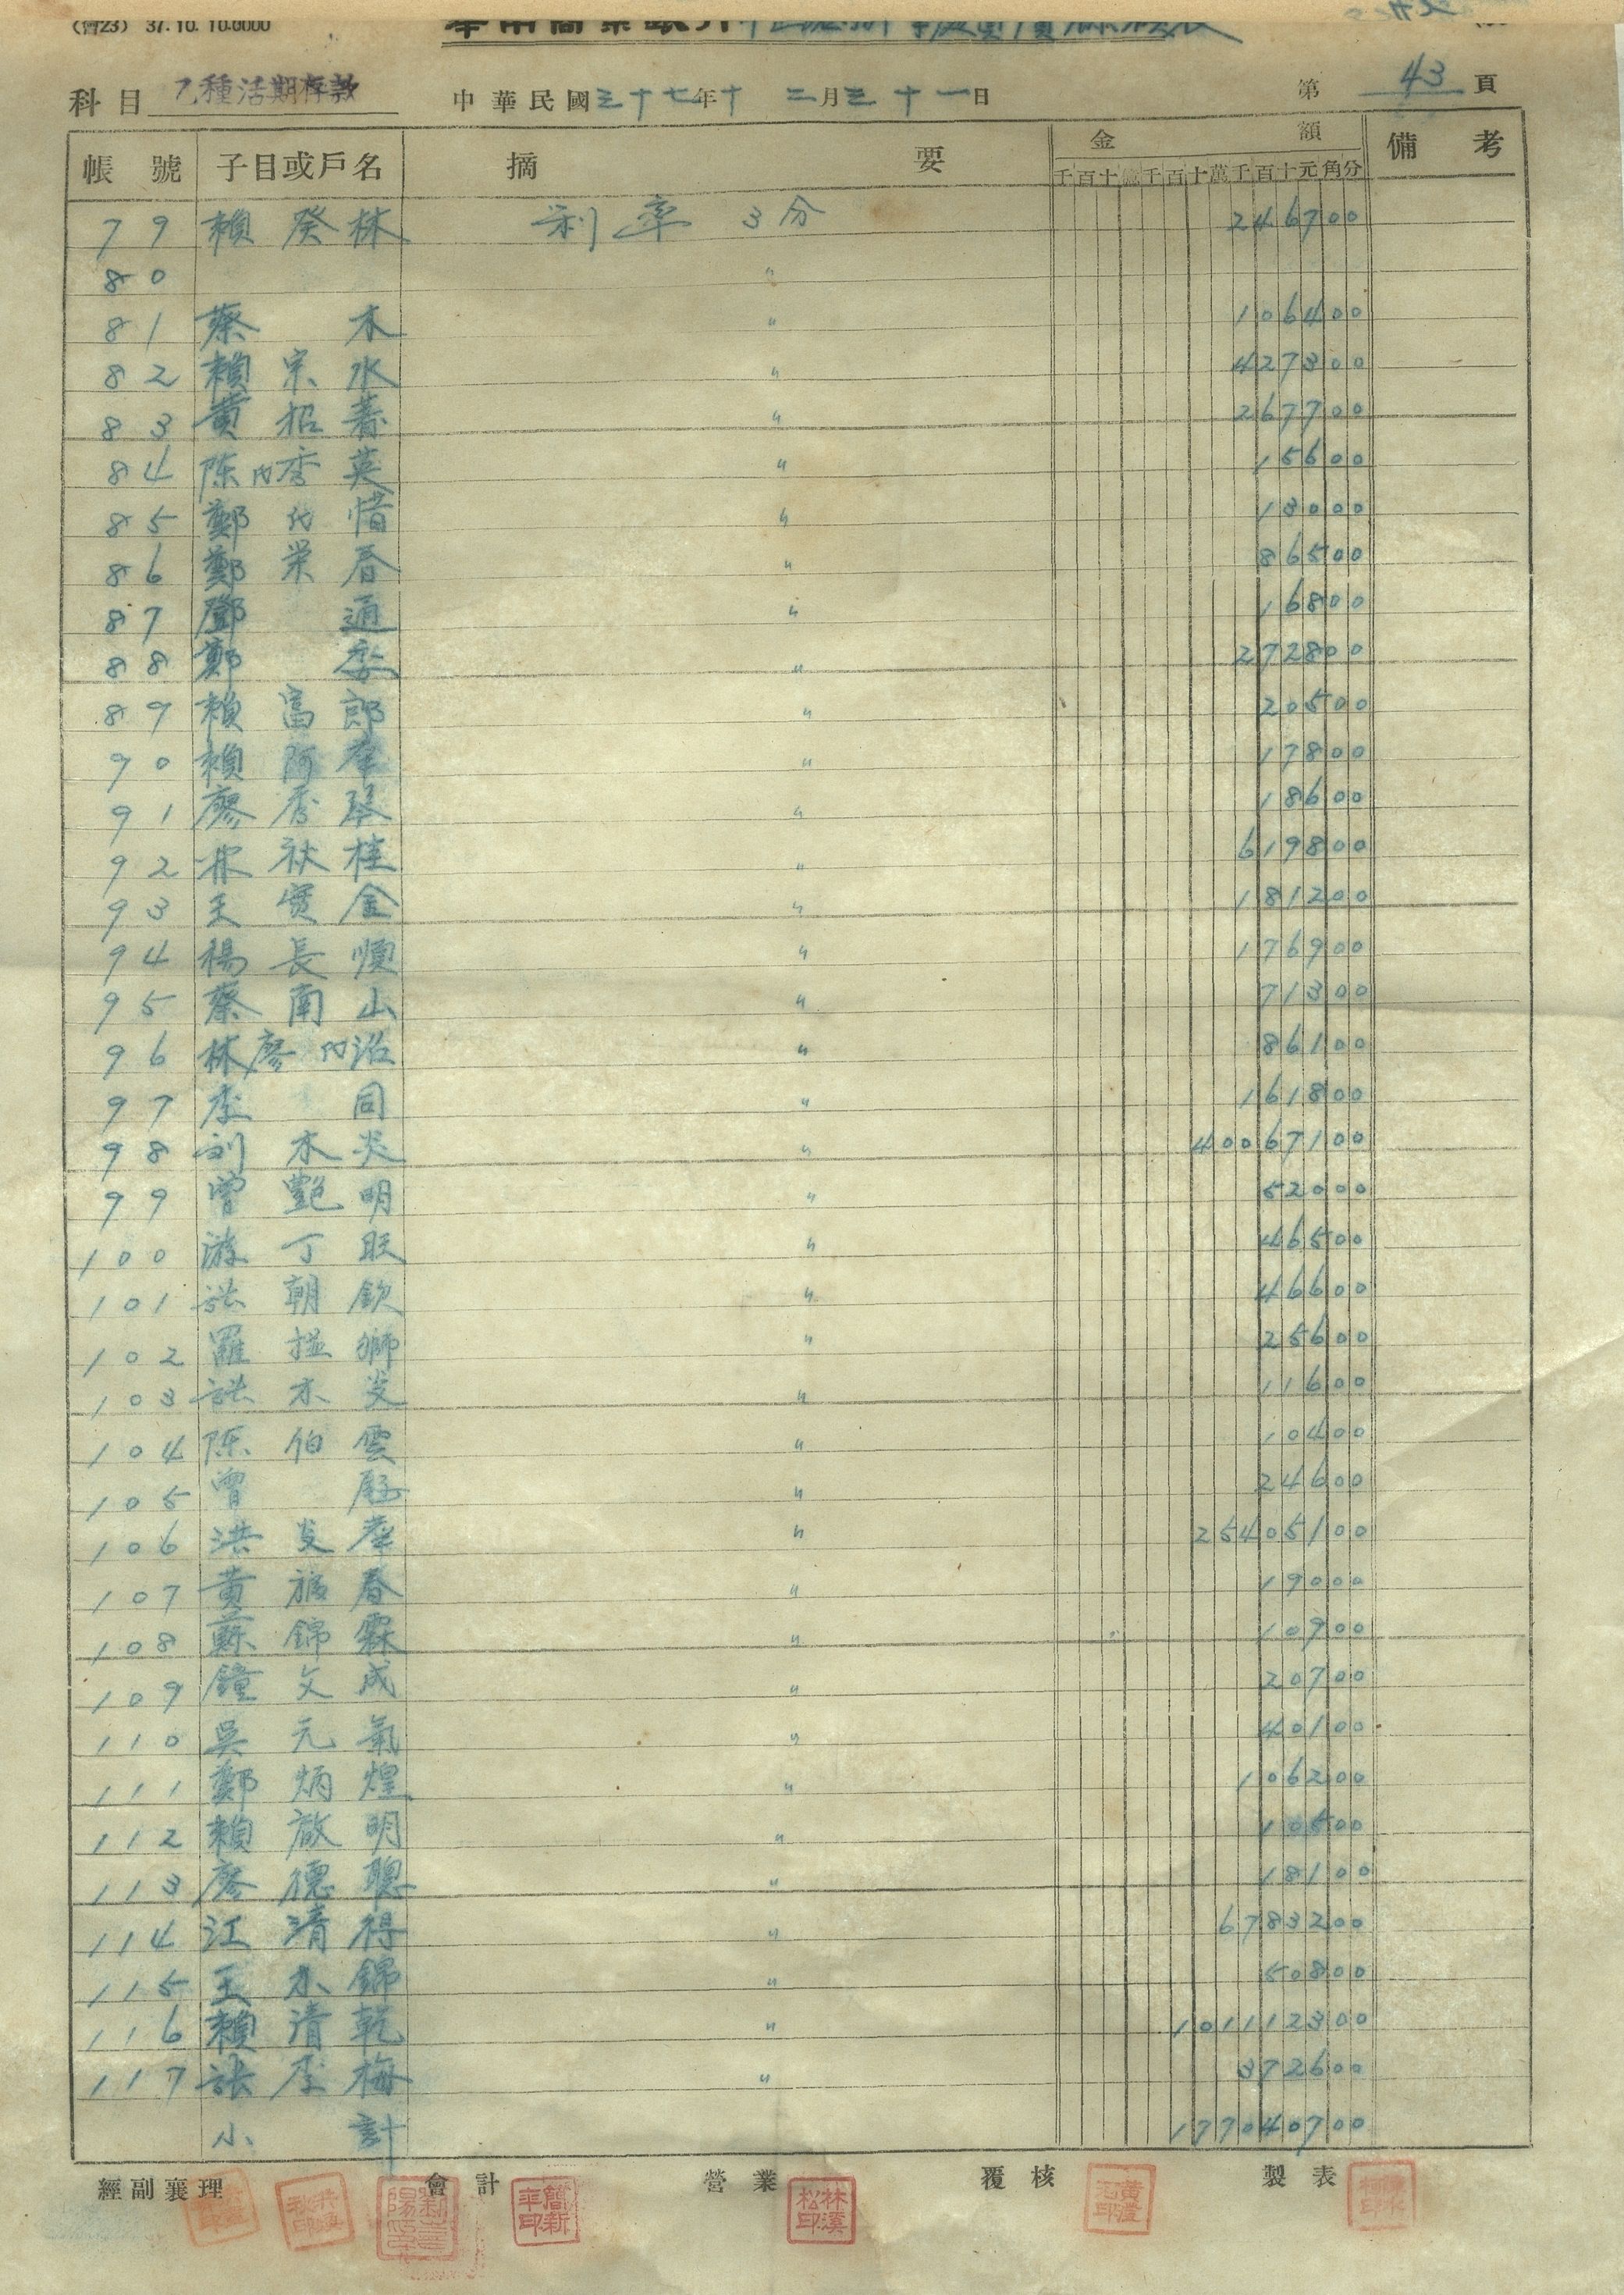 (會23) 37. 10. 10.0000
科目 乙種活期存款 中華民國三十七年十二月三十一日 第 43 頁
帳號 子目或戶名 摘要 金額 備考
千百十億千百十萬千百十元角分
79 賴癸林 利率 3分 246700
80 〃
81 蔡木 〃 106400
82 賴宗水 〃 427300
83 黃招 〃 267700
84 陳內李英 〃 15600
85 鄭代惜 〃 13000
86 鄭栄春 〃 86500
87 鄧通 〃 16800
88 鄭 〃 272800
89 賴富郎 〃 20500
90 賴阿 〃 17800
91 廖 〃 18600
92 林秋桂 〃 619800
93 王寶金 〃 181200
94 楊長順 〃 176900
95 蔡南山 〃 71300
96 林廖內沼 〃 86100
97 李同 〃 161800
98 劉木炎 〃 40067100
99 曾艷明 〃 52000
100 游丁旺 〃 46500
101 張朝欽 〃 46600
102 羅獅 〃 25600
103 張木 〃 11600
104 陳伯雲 〃 10400
105 曾 〃 24600
106 洪 〃 25405100
107 黃春 〃 19000
108 蘇錦霖 〃 10900
109 鐘文成 〃 20700
110 吳元氣 〃 40100
111 鄭炳煌 〃 106200
112 賴啟明 〃 10500
113 廖德聰 〃 18100
114 江清得 〃 6783200
115 王水錦 〃 50800
116 賴清乾 〃 101112300
117 張李梅 〃 372600
小計 177040700
經副襄理 會計 營業 覆核 製表
簡新年印 林漢松印